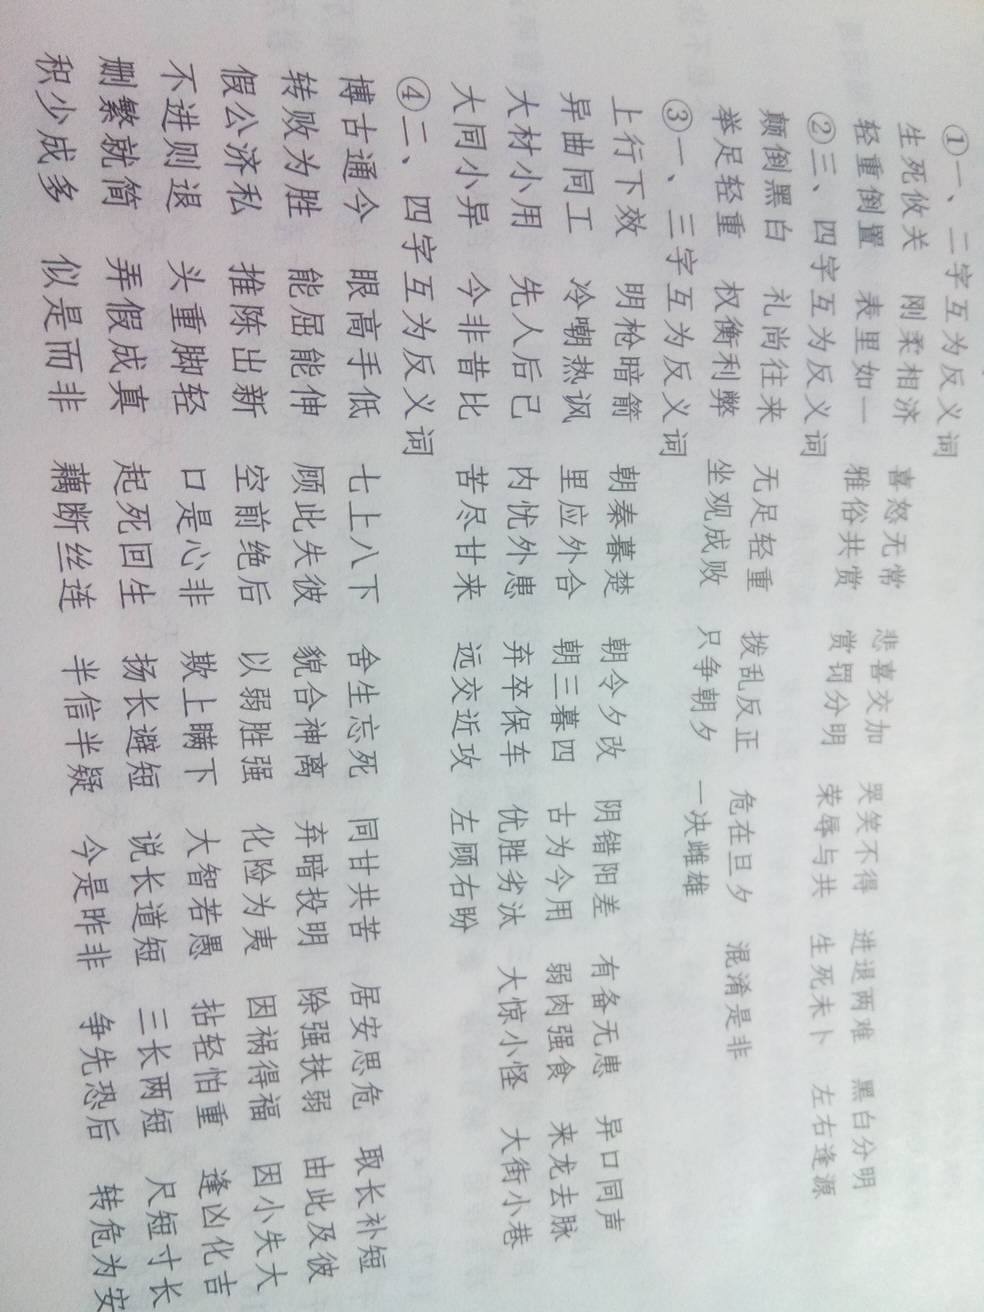 ①一、二字互为反义词
生死攸关 刚柔相济 喜怒无常 悲喜交加 哭笑不得 进退两难 黑白分明
轻重倒置 表里如一 雅俗共赏 赏罚分明 荣辱与共 生死未卜 左右逢源
②三、四字互为反义词
颠倒黑白 礼尚往来 无足轻重 拨乱反正 危在旦夕 混淆是非
举足轻重 权衡利弊 坐观成败 只争朝夕 一决雌雄
③一、三字互为反义词
上行下效 明枪暗箭 朝秦暮楚 朝令夕改 阴错阳差 有备无患 异口同声
异曲同工 冷嘲热讽 里应外合 朝三暮四 古为今用 弱肉强食 来龙去脉
大材小用 先人后己 内忧外患 弃卒保车 优胜劣汰 大惊小怪 大街小巷
大同小异 今非昔比 苦尽甘来 远交近攻 左顾右盼
④二、四字互为反义词
博古通今 眼高手低 七上八下 舍生忘死 同甘共苦 居安思危 取长补短
转败为胜 能屈能伸 顾此失彼 貌合神离 弃暗投明 除强扶弱 由此及彼
假公济私 推陈出新 空前绝后 以弱胜强 化险为夷 因祸得福 因小失大
不进则退 头重脚轻 口是心非 欺上瞒下 大智若愚 拈轻怕重 逢凶化吉
删繁就简 弄假成真 起死回生 扬长避短 说长道短 三长两短 尺短寸长
积少成多 似是而非 藕断丝连 半信半疑 今是昨非 争先恐后 转危为安